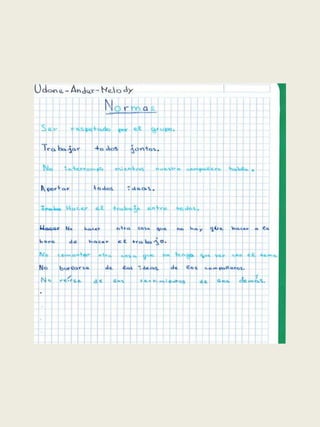 Udane-Andar-Melody
Normas
Ser respetado por el grupo.
Trabajar todos juntos.
No interrumpir mientras nuestro compañero habla.
Aportar todos ideas.
Traba Hacer el trabajo entre todos.
Hacer No hacer otra cosa que no hay que hacer a la
hora de hacer el trabajo.
No comentar otra cosa que no tenga que ver con el tema
No burlarse de las ideas de los compañeros.
No reirse de los sentimientos de los demás.